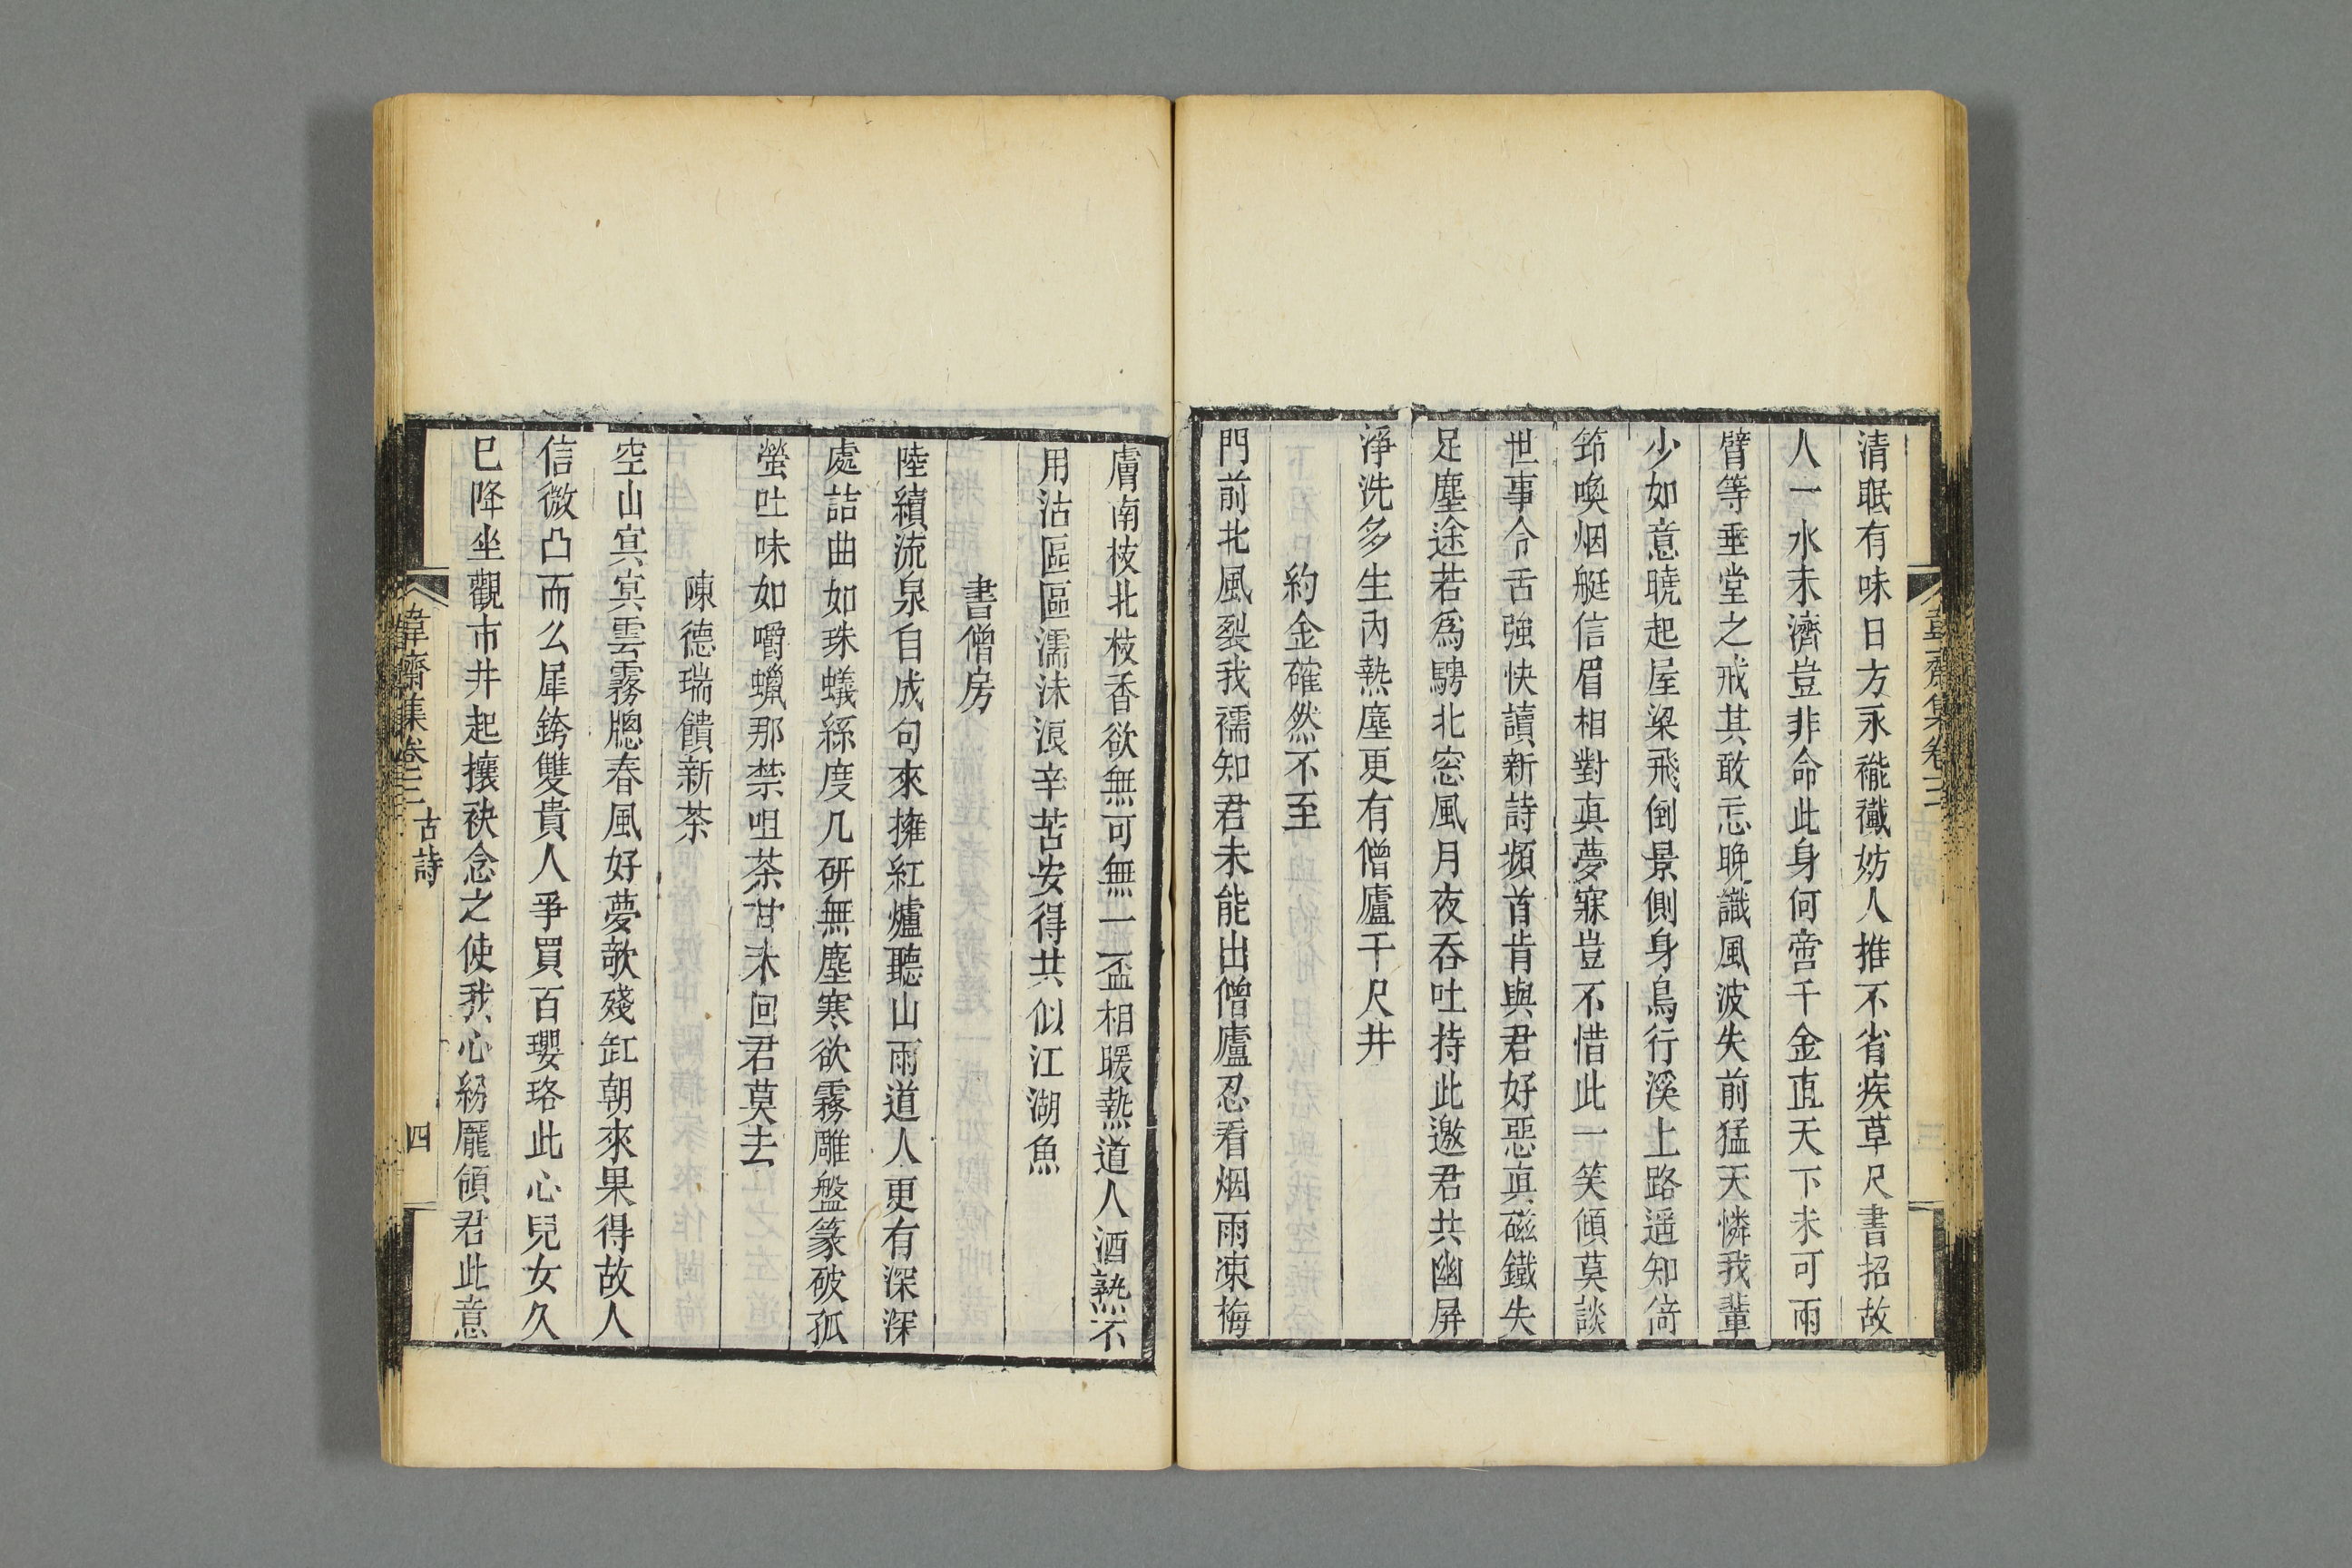 清眠有味日方永褦襶妨人推不省疾草尺書招故
人一水未濟豈非命此身何啻千金直天下未可兩
臂等垂堂之戒其敢忘晚識風波失前猛天憐我輩
少如意曉起屋梁飛倒景側身鳥行溪上路遥知倚
筇喚烟艇信眉相對真夢寐豈不惜此一笑傾莫談
世事令舌強快讀新詩頻首肯與君好惡真磁鐵失
足塵途若爲騁北窓風月夜吞吐持此邀君共幽屏
淨洗多生內熱塵更有僧廬千尺井
約金確然不至
門前北風裂我襦知君未能出僧廬忍看烟雨凍梅
膚南枝北枝香欲無可無一盃相暖熱道人酒熱不
用沽區區濡沫浪辛苦安得共似江湖魚
書僧房
陸續流泉自成句來擁紅爐聽山雨道人更有深深
處詰曲如珠蟻絲度几研無塵寒欲霧雕盤篆破孤
螢吐味如嚼蠟那禁咀茶甘未回君莫去
陳德瑞饋新茶
空山冥冥雲霧牕春風好夢欹殘缸朝來果得故人
信微凸而么犀銙雙貴人爭買百瓔珞此心兒女久
已降坐觀市井起攘袂念之使我心紛龎領君此意
韋齋集卷三 古詩 四